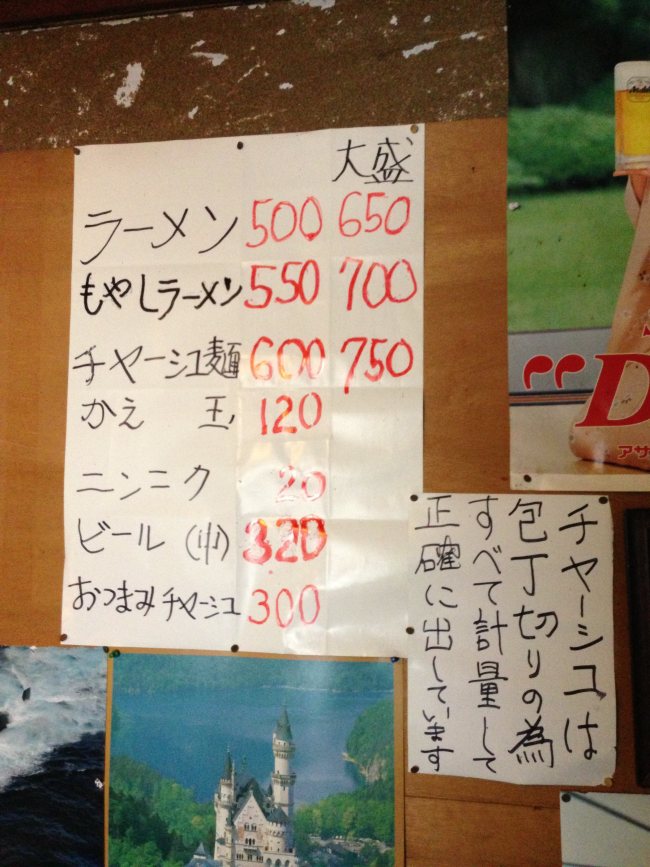 大盛
ラーメン 500 650
もやしラーメン 550 700
チャーシュー麺 600 750
かえ玉 120
ニンニク 20
ビール(中) 320
おつまみチャーシュー 300
チャーシューは
包丁切りの為
すべて計量して
正確に出しています
"D
アサ